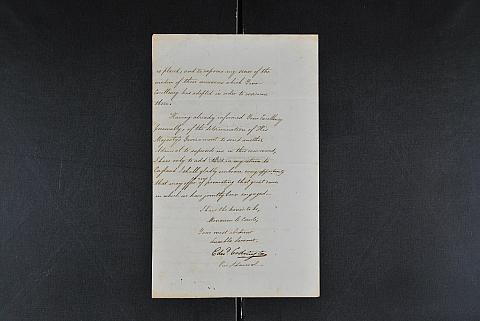 is placed, and to express my sense of the
wisdom of those measures which Your
Excellency has adopted in order to overcome
them.
Having already informed Your Excellency
personally, of the determination of His
Majesty's Government to send another
Admiral to supersede me in this command,
I have only to add that in my return to
England I shall gladly embrace every opportunity
that may offer of promoting that great cause
in which we have jointly been engaged.
I have the honor to be,
Monsieur le Comte,
Your most obedient
humble Servant,
Edwd. Codrington
Vice Admiral